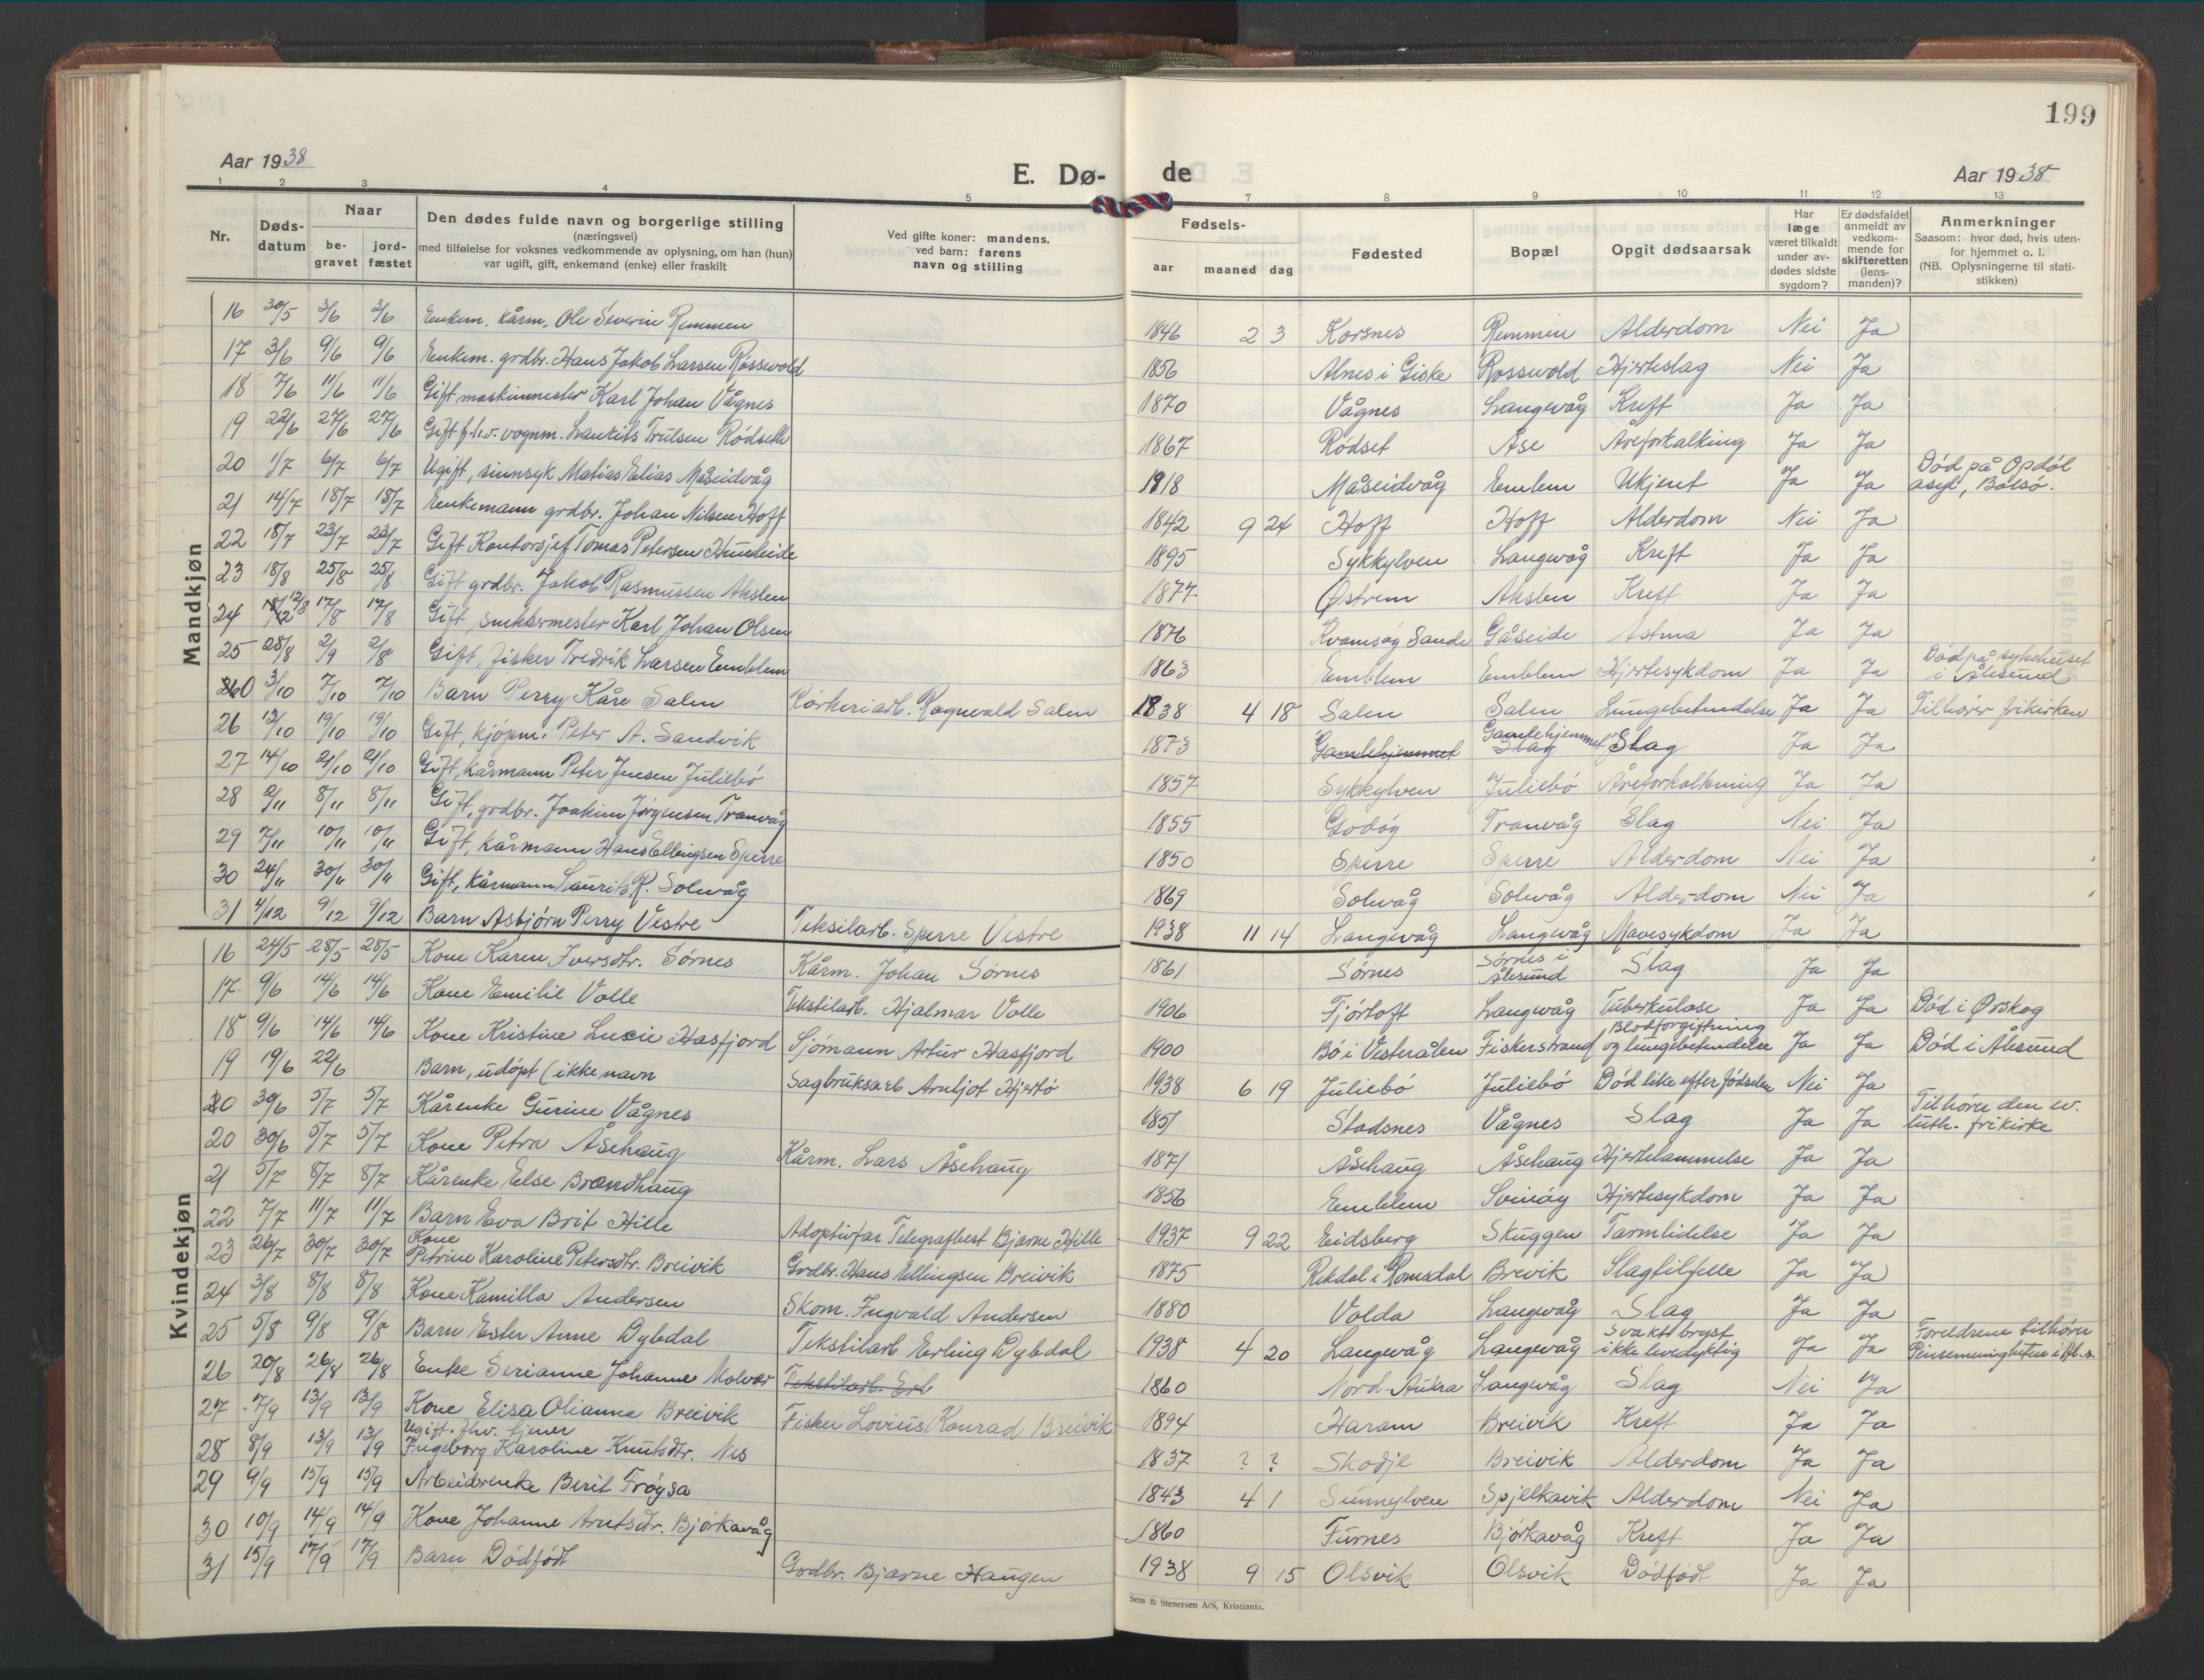 199
Aar 1938
E. Dø-
de
Aar 1938
1 2 3 4 5 7 8 9 10 11 12 13
Nr.
Døds-
datum
Naar
be-
gravet
jord-
fæstet
Den dødes fulde navn og borgerlige stilling
(næringsvei)
med tilføielse for voksnes vedkommende av oplysning, om han (hun)
var ugift, gift, enkemand (enke) eller fraskilt
Ved gifte koner: mandens,
ved barn: farens
navn og stilling
Fødsels-
aar maaned dag
Fødested
Bopæl
Opgit dødsaarsak
Har
læge
været tilkaldt
under av-
dødes sidste
sygdom?
Er dødsfaldet
anmeldt av
vedkom-
mende for
skifteretten
(lens-
manden)?
Anmerkninger
Saasom: hvor død, hvis uten-
for hjemmet o. l.
(NB. Oplysningerne til stati-
stikken)
Mandkjøn
16 30/5 3/6 3/6 Enkem. kårm. Ole Severin Remmen 1846 2 3 Korsnes Remmen Alderdom Nei Ja
17 3/6 9/6 9/6 Enkem. grdbr. Hans Jakob Larsen Røssevold 1856 Alnes i Giske Rossevold Hjerteslag Nei Ja
18 7/6 11/6 11/6 Gift maskinmester Karl Johan Vågnes 1870 Vågnes Langevåg Kreft Ja Ja
19 22/6 27/6 27/6 Gift f.h.v. vognm. Laurits Trulsen Rødseth 1867 Rødset Åse Åreforkalking Ja Ja
20 1/7 6/7 6/7 Ugift, sinnsyk Matias Elias Måseidvåg 1918 Måseidvåg Emlem Ukjent Ja Ja Død på Opdøl
asyl, Bolsø.
21 14/7 18/7 18/7 Enkemann grdbr. Johan Nilsen Hoff 1842 9 24 Hoff Hoff Alderdom Nei Ja
22 18/7 23/7 23/7 Gift Kontorsjef Tomas Petersen Hunleide 1895 Sykkylven Langevåg Kreft Ja Ja
23 18/8 25/8 25/8 Gift grdbr. Jakob Rasmussen Akslen 1877 Østrem Akslen Kreft Ja Ja
24 12/8 17/8 17/8 Gift, snekkermester Karl Johan Olsen 1876 Kvamsøy Sande Gåseide Astma Ja Ja
25 28/8 2/9 2/8 Gift, fisker Fredrik Larsen Emblem 1863 Emblem Emblem Hjertesykdom Ja Ja Død på sykehuset
i Ålesund
0 3/10 7/10 7/10 Barn Perry Kåre Salen Rørkeriarb. Ragnvald Salen 1938 4 18 Salen Salen Lungebetendelse Ja Ja Tilhører frikirken
26 13/10 19/10 19/10 Gift, kjøpm. Peter A. Sandvik 1873 Gamlehjemmet Gamlehjemmet Slag Slag Ja Ja
27 14/10 21/10 21/10 Gift, kårmann Peter Jensen Juliebø 1857 Sykkylven Juliebø Åreforkalkning Ja Ja
28 2/11 8/11 8/11 Gift, grdbr. Joakim Jørgensen Tranvåg 1855 Godøy Tranvåg Slag Nei Ja
29 7/11 10/11 10/11 Gift, kårmann Hans Ellingsen Sperre 1850 Sperre Sperre Alderdom Nei Ja
30 24/11 30/11 30/11 Gift, kårmann Laurits R. Solevåg 1869 Solevåg Solevåg Alderdom Nei Ja
31 4/12 9/12 9/12 Barn Asbjørn Perry Vestre Teksilarb. Sperre Vestre 1938 11 14 Langevåg Langevåg Mavesykdom Ja Ja
Kvindekjøn
16 24/5 28/5 28/5 Kone Karen Iversdtr. Sørnes Kårm. Johan Sørnes 1861 Sørnes Sørnes i
Ålesund Slag Ja Ja
17 9/6 14/6 14/6 Kone Emilie Volle Tekstilarb. Hjalmar Volle 1906 Fjørtoft Langevåg Tuberkulose Ja Ja Død i Ørskog
18 9/6 14/6 14/6 Kone Kristine Lucie Hasfjord Sjømann Artur Hasfjord 1900 Bø i Vesterålen Fiskerstrand Blodforgiftning
og lungebetendelse Ja Ja Død i Ålesund
19 19/6 22/6 Barn, udøpt (ikke navn Sagbruksarb Arnljot Hjertø 1938 6 19 Juliebø Juliebø Død like efter fødselen Nei Ja
20 30/6 5/7 5/7 Kårenke Gurine Vågnes 1851 Stadsnes Vågnes Slag Ja Ja Tilhører den ev.
luth. frikirke
20 30/6 5/7 5/7 Kone Petra Åsehaug Kårm. Lars Åsehaug 1871 Åsehaug Åsehaug Hjertelammelse Ja Ja
21 5/7 8/7 8/7 Kårenke Else Brandhaug 1856 Emblem Svinøy Hjertesykdom Ja Ja
22 7/7 11/7 11/7 Barn Eva Brit Hille Adoptivfar Telegrafbest Bjarne Hille 1937 9 22 Eidsberg Skuggen Tarmlidelse Ja Ja
23 26/7 30/7 30/7 Kone
Petrine Karoline Petersdtr. Breivik Grdbr. Hans Ellingsen Breivik 1875 Rekdal i Romsdal Brevik Slagtilfelle Ja Ja
24 3/8 8/8 8/8 Kone Kamilla Andersen Skom. Ingvald Andersen 1880 Volda Langevåg Slag Ja Ja
25 5/8 9/8 9/8 Barn Ester Anne Dybdal Tekstilarb Erling Dybdal 1938 4 20 Langevåg Langevåg Svakt bryst
ikke levedyktig Ja Ja Foreldrene tilhører
Pinsemenigheten i
26 20/8 26/8 26/8 Enke Serianne Johanne Molvær Tekstilarb. Erl 1860 Nord-Aukra Langevåg Slag Nei Ja
27 7/9 13/9 13/9 Kone Elisa Olianna Breivik Fisker Lovius Konrad Breivik 1894 Haram Breivik Kreft Ja Ja
28 8/9 13/9 13/9 Ugift. fhv. tjener
Ingeborg Karoline Knutsdtr. Nes 1837 ? ? Skodje Breivik Alderdom Ja Ja
29 9/9 15/9 15/9 Arbeiderenke Berit Frøysa 1843 4 1 Sunnylven Spjelkavik Alderdom Nei Ja
30 10/9 14/9 14/9 Kone Johanne Arntsdtr. Bjørkavåg 1860 Furnes Bjørkavåg Kreft Ja Ja
31 15/9 17/9 17/9 Barn Dødfødt Grdbr. Bjarne Haugen 1938 9 15 Olsvik Olsvik Dødfødt Ja Ja
Sem & Stenersen A/S, Kristiania.